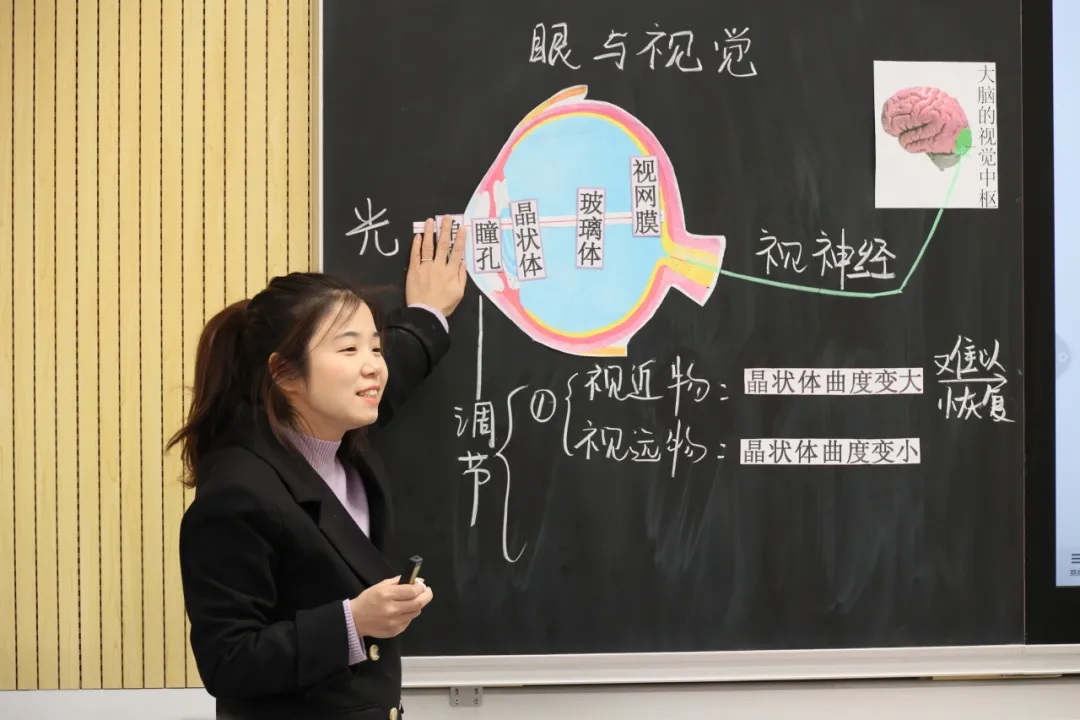 眼与视觉
大脑的视觉中枢
光
瞳孔
晶状体
玻璃体
视网膜
视神经
调节
① 视近物：晶状体曲度变大
难以恢复
视远物：晶状体曲度变小